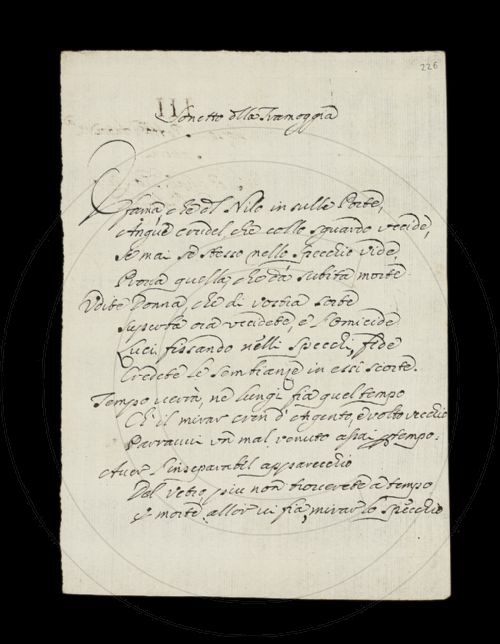 226
Sonetto alla Tramoggia
È fama, che del Nilo in sulle Porte,
Angue crudel che collo sguardo uccide,
Se mai se stesso nello specchio vide,
Prova quella, che dà subita morte
Udite Donna, che di vostra sorte
Superba ora uccidete, e l'omicide
Luci fissando nelli specchi, fide
Credete le sembianze in essi scorte.
Tempo verrà, nè lungi fia quel tempo
Ch'il mirar crin d'Argento, e volto vecchio
Parravvi un mal venuto assai per tempo.
Aver l'inseparabil apparecchio
Del vetro, più non troverete a tempo
E morte allor vi fia, mirar lo specchio